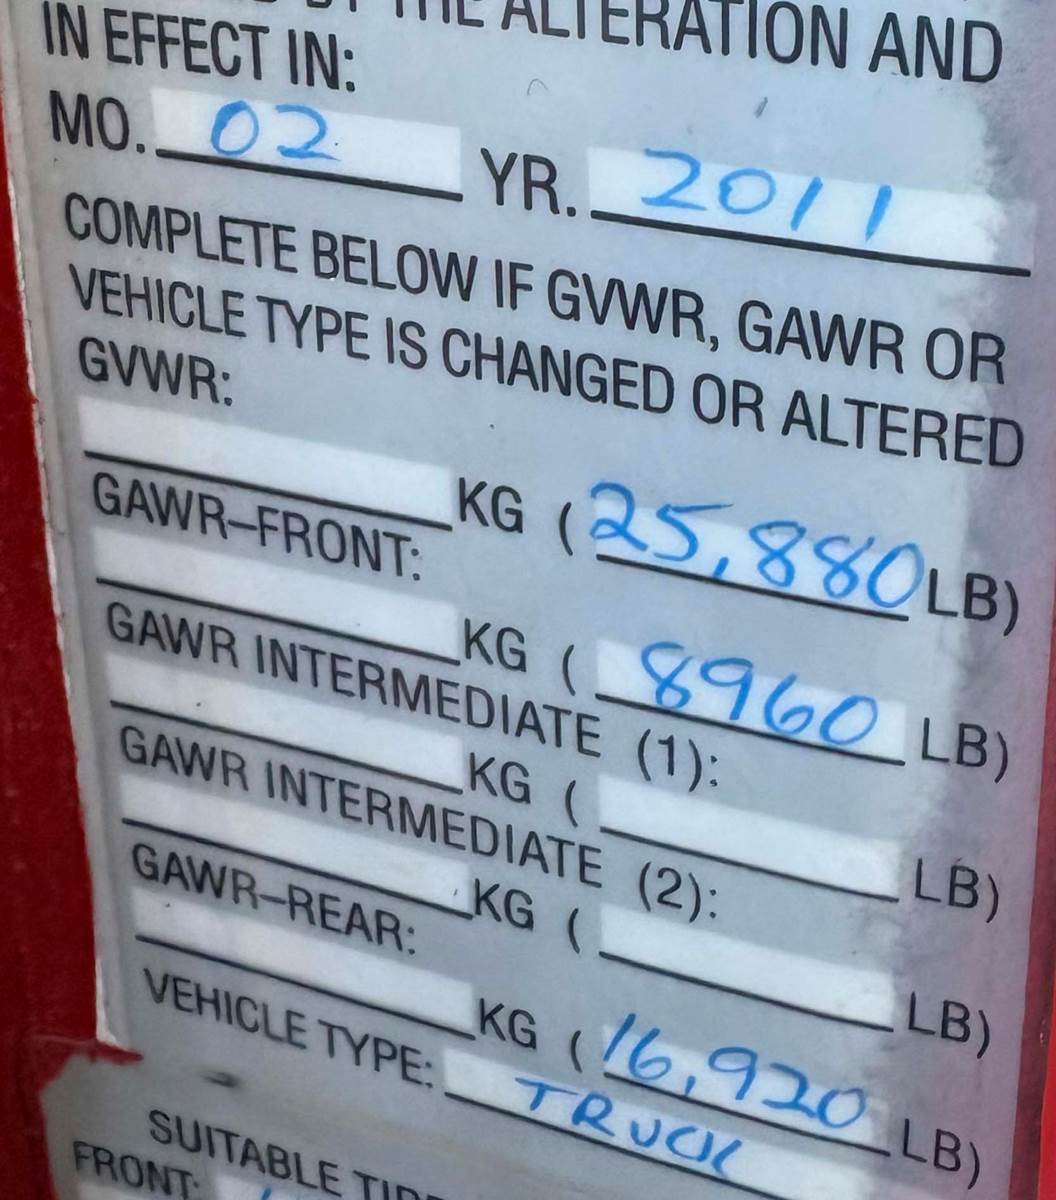 THE ALTERATION AND
IN EFFECT IN:
MO. 02 YR. 2011
COMPLETE BELOW IF GVWR, GAWR OR
VEHICLE TYPE IS CHANGED OR ALTERED
GVWR:
KG (25,880 LB)
GAWR–FRONT:
KG ( 8960 LB)
GAWR INTERMEDIATE (1):
KG ( LB)
GAWR INTERMEDIATE (2):
KG ( LB)
GAWR–REAR:
KG (16,920 LB)
VEHICLE TYPE: TRUCK
SUITABLE
FRONT: